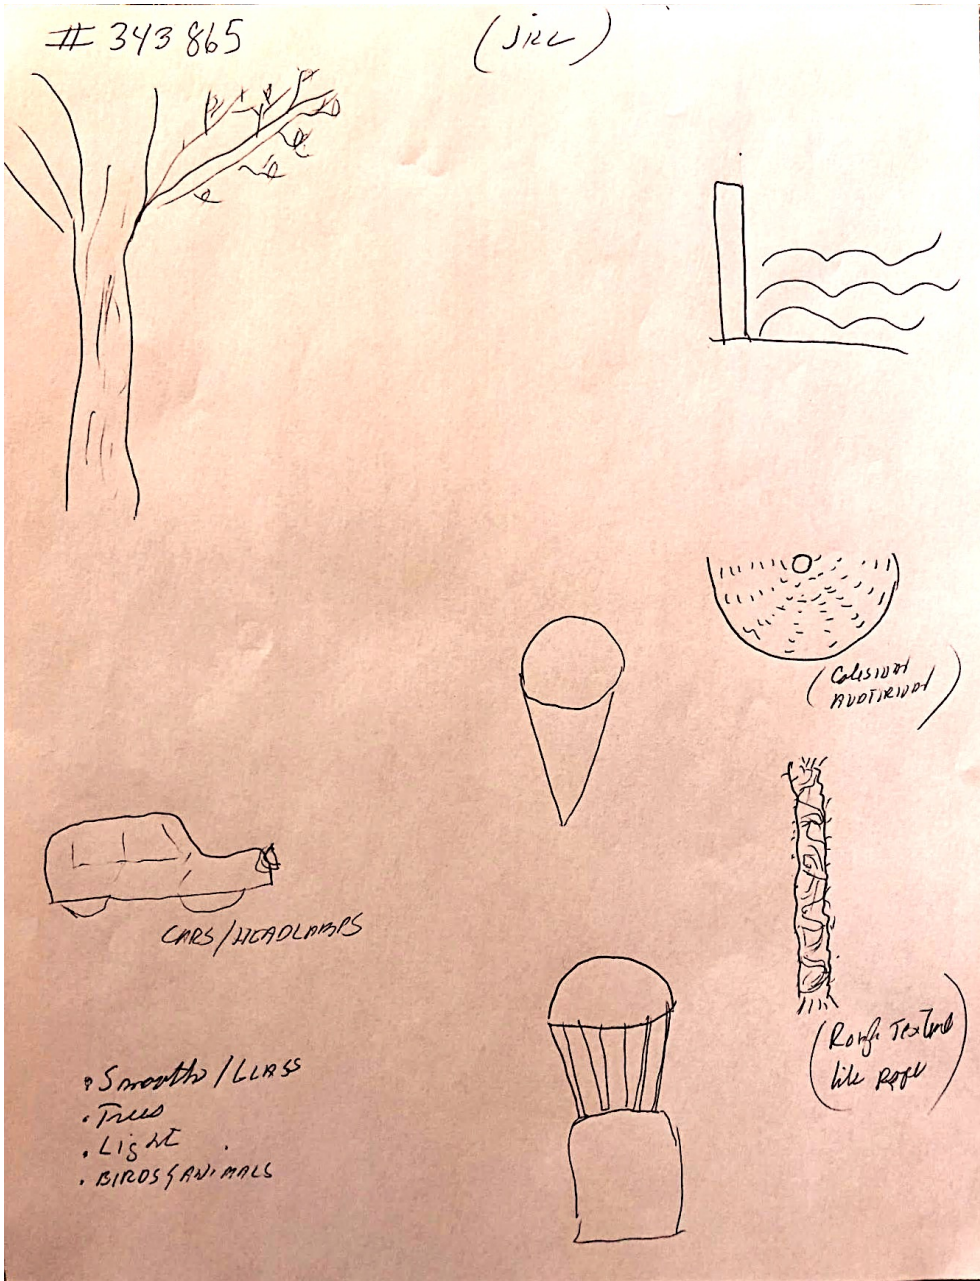 # 343865
(JRC)
(COLESIUM
AUDTIRIUM)
CARS/HEADLAMPS
(Rough Texture
like Rope)
• Smooth/GLASS
• Trees
• Light
• BIRDS & ANIMALS